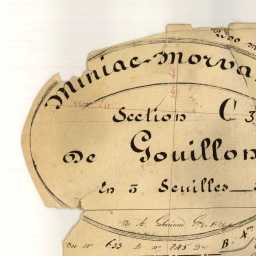 Miniac-Morva
Section C 3
De Gouillon
En 3 Feuilles
Du nº 633 à nº 745 B.